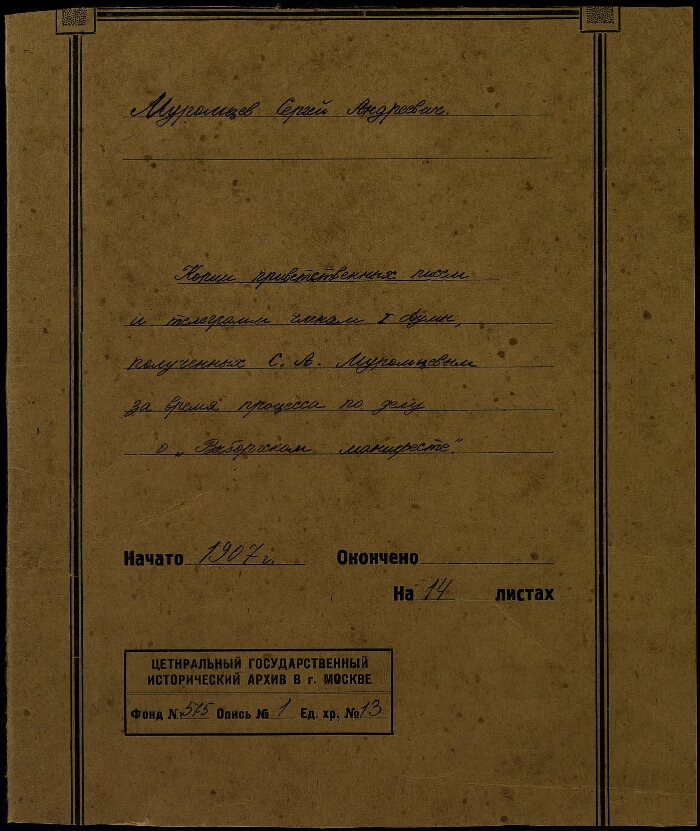 Муромцев Сергей Андреевич.
Копии приветственных писем
и телеграмм членам I Думы,
полученных С. А. Муромцевым
за время процесса по делу
о „Выборгском манифесте".
Начато 1907 г. Окончено
На 14 листах
ЦЕТНРАЛЬНЫЙ ГОСУДАРСТВЕННЫЙ
ИСТОРИЧЕСКИЙ АРХИВ В г. МОСКВЕ
Фонд № 575 Опись № 1 Ед. хр. № 13